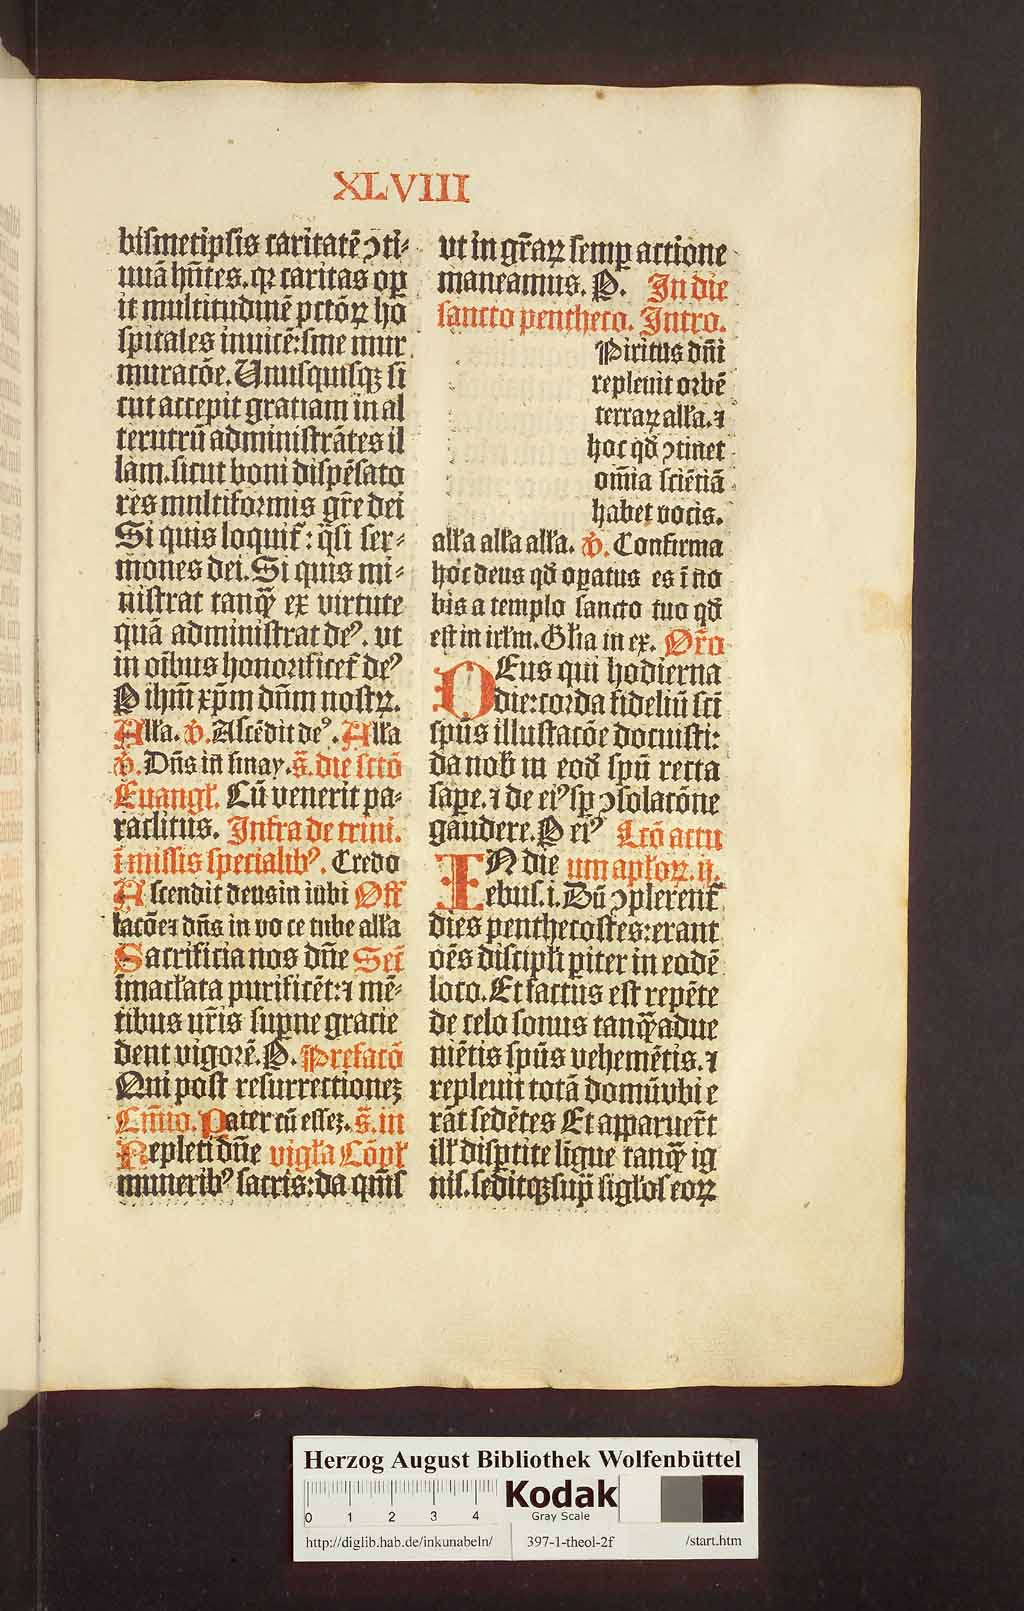 XLVIII
biſmetipſis caritatē ↄti-
nuā hn̄tes. qꝛ caritas oꝑ
it multitudinē pctōꝝ ho
ſpitales inuicē: ſine mur
muracōe. Unuſquiſqꝫ ſi
cut accepit gratiam in al
terutrū adminiſtrātes il
lam. ſicut boni diſpēſato
res multiformis gr̄e dei
Si quis loquit᷑: q̄ſi ſer-
mones dei. Si quis mi-
niſtrat tanqͣꝫ ex virtute
quā adminiſtrat deꝰ. ut
in oībus honorificet᷑ deꝰ
P ihm̄ xp̄m dn̄m noſtꝝ.
Alľa. ℣. Aſcēdit deꝰ. Alľa
℣. Dn̄s in ſinay. s̄. die ſctō
Euangľ. Cū venerit pa-
raclitus. Infra de trini.
ī miſſis ſpecialibꝰ. Credo
Aſcendit deus in iubi Off
lacōe ⁊ dn̄s in vo ce tube alľa
Sacrificia nos dn̄e Scī
īmacľata purificēt: ⁊ mē-
tibus ur̄is ſupne gracie
dent vigorē. P. Prefacō
Qui poſt reſurrectioneꝫ
Cm̄io. Pater cū eſſeꝫ. s̄. in
Repleti dn̄e vigľa Cōpľ
muneribꝰ ſacris: da qm̄ſ
ut in gr̄aꝝ ſemꝑ actione
maneamus. P. In die
ſancto pentheco. Intro.
Piritus dn̄i
repleuit orbē
terraꝝ alľa. ⁊
hoc qđ ↄtinet
om̄ia ſciētiā
habet vocis.
alľa alľa alľa. ℣. Confirma
hoc deus qđ oꝑatus es ī no
bis a templo ſancto tuo qđ
eſt in irľm. Gľia in ex. Or̄o
DEus qui hodierna
die: corda fideliū ſcī
ſpūs illuſtacōe docuiſti:
da nob̄ in eođ ſpū recta
ſape. ⁊ de eiꝰ ſꝑ ↄſolacōne
gaudere. P eiꝰ Lcō actu
IN die um apľoꝝ. ij.
ebuſ. i. Dū ↄplerent᷑
dies penthecoſtes: erant
oēs diſcipľi ꝑiter in eodē
loco. Et factus eſt repēte
de celo ſonus tanqͣꝫ adue
niētis ſpūs vehemētis. ⁊
repleuit totā domū vbi e
rāt ſedētes Et apparuer̄t
illľ diſꝑtite līgue tanqͣꝫ ig
niſ. ſeditqꝫ ſup̄ ſigľoſ eoꝝ
Herzog August Bibliothek Wolfenbüttel
0 1 2 3 4
Kodak
Gray Scale
http://diglib.hab.de/inkunabeln/ 397-1-theol-2f /start.htm